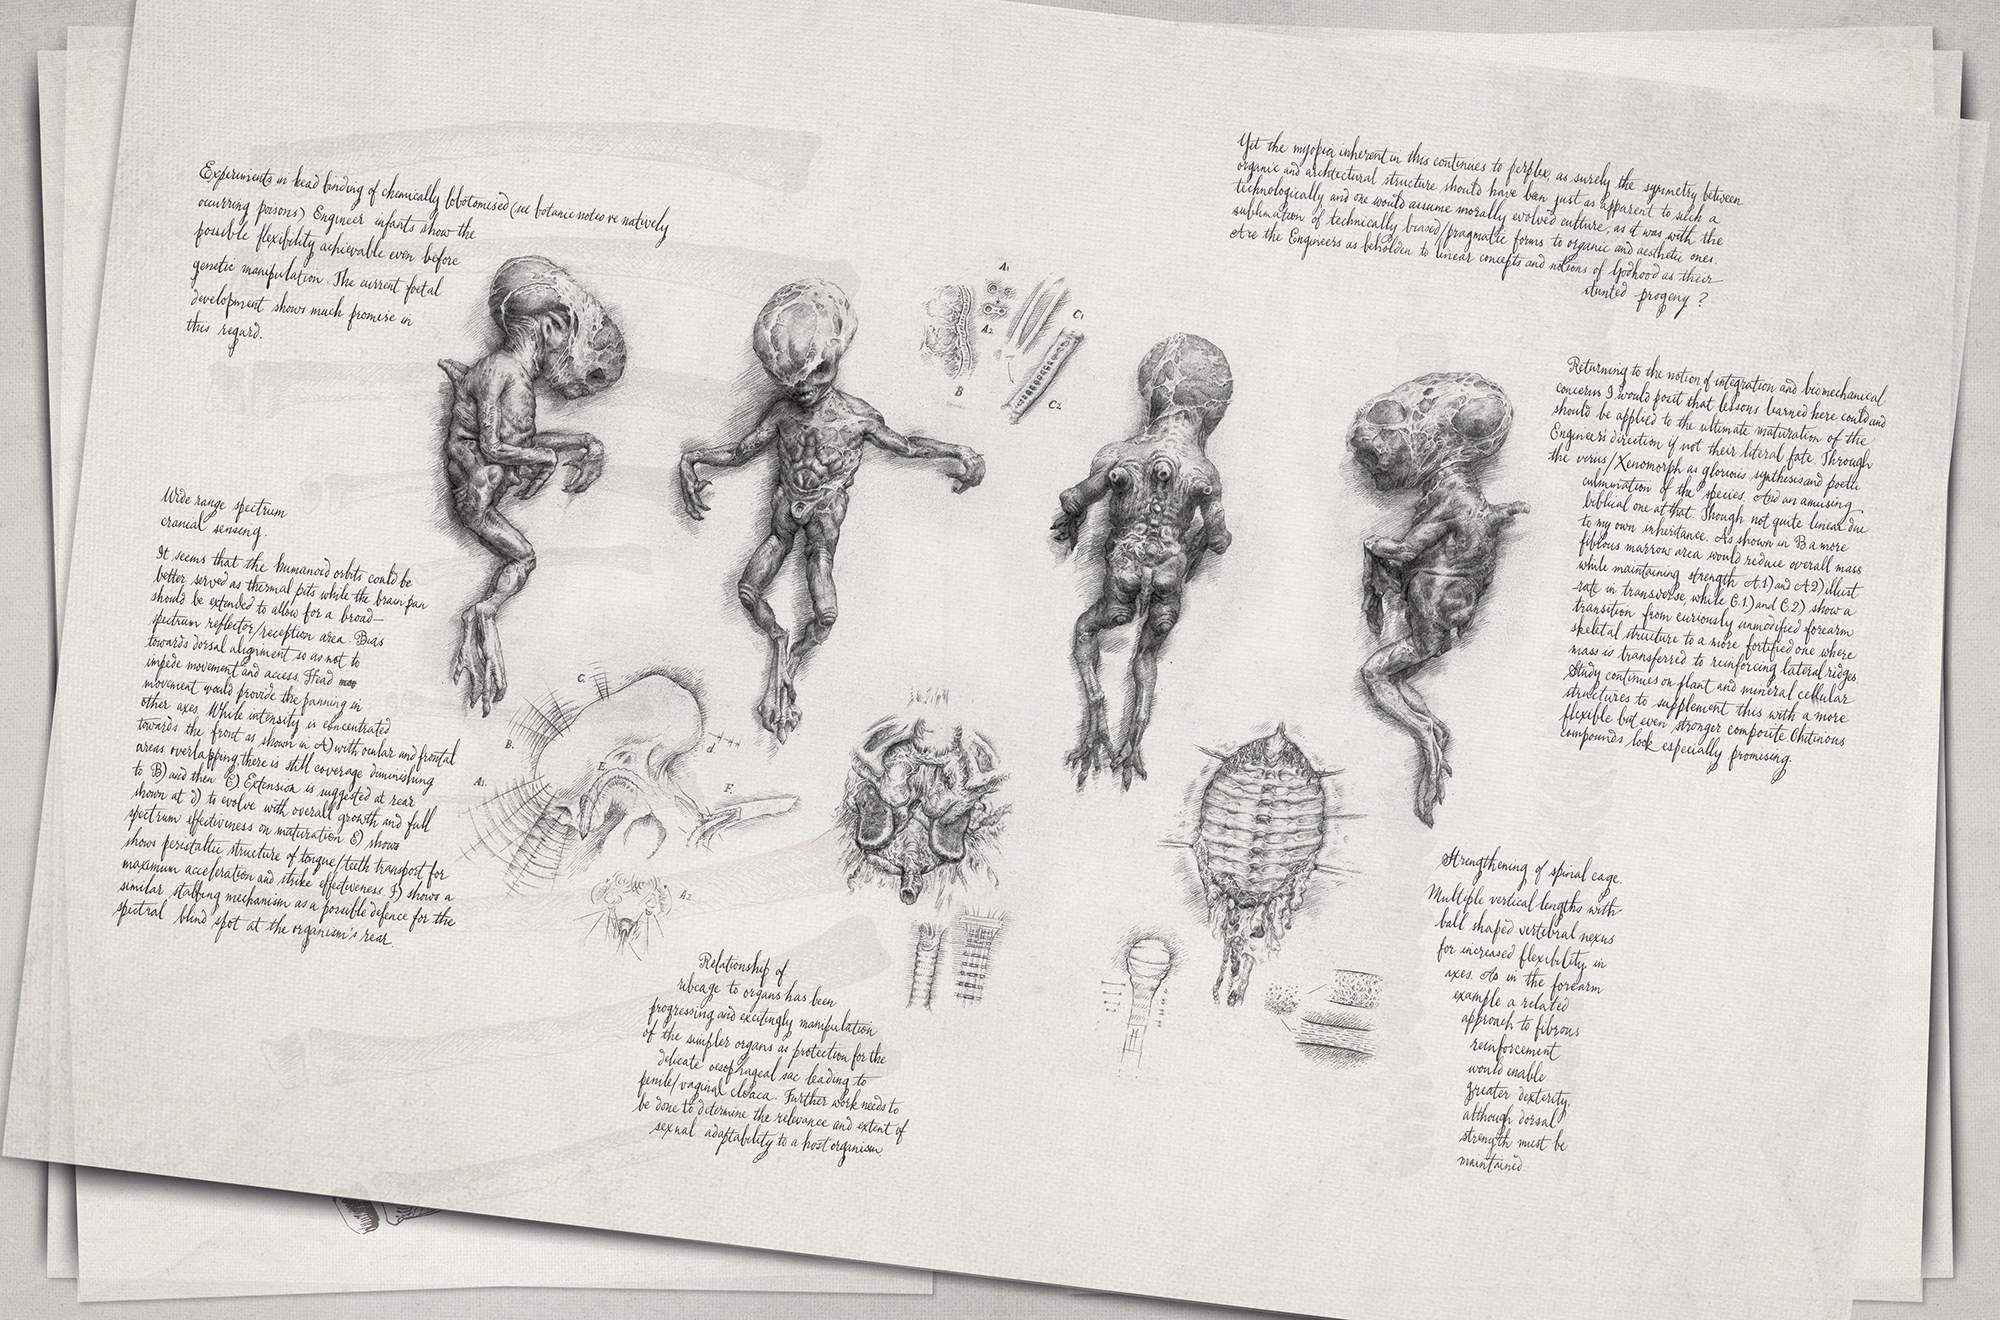 Experiments in head binding of chemically lobotomised (see botanic notes re natively
occurring poisons) Engineer infants show the
possible flexibility achievable even before
genetic manipulation. The current foetal
development shows much promise in
this regard.
Yet the myopia inherent in this continues to perplex, as surely the symmetry between
organic and architectural structure should have been just as apparent to such a
technologically and one would assume morally evolved culture, as it was with the
sublimation of technically biased/pragmatic forms to organic and aesthetic ones.
Are the Engineers as beholden to linear concepts and notions of Godhood as their
stunted progeny?
A1
A2
B
C1
C2
Returning to the notion of integration and biomechanical
concerns I would posit that lessons learned here could and
should be applied to the ultimate maturation of the
Engineers direction if not their literal fate. Through
the virus/Xenomorph as glorious synthesis and poetic
culmination of the species. And an amusing
biblical one at that. Though not quite linear due
to my own inheritance. As shown in B a more
fibrous marrow area would reduce overall mass
while maintaining strength A.1) and A.2) illust
-rate in transverse, while C.1) and C.2) show a
transition from curiously unmodified forearm
skeletal structure to a more fortified one where
mass is transferred to reinforcing lateral ridges.
Study continues on plant and mineral cellular
structures to supplement this with a more
flexible but even stronger composite Chitinous
compounds look especially promising.
Wide range spectrum
cranial sensing.
It seems that the humanoid orbits could be
better served as thermal pits while the brain pan
should be extended to allow for a broad-
spectrum reflector/reception area. Bias
towards dorsal alignment so as not to
impede movement and access. Head
movement would provide the panning in
other axes. While intensity is concentrated
towards the front as shown in A) with ocular and frontal
areas overlapping, there is still coverage diminishing
to B) and then C) Extension is suggested at rear
shown at d) to evolve with overall growth and full
spectrum effectiveness on maturation E) shows
shows peristaltic structure of tongue/teeth transport for
maximum acceleration and strike effectiveness F) shows a
similar stabbing mechanism as a possible defence for the
spectral blind spot at the organism's rear.
C.
B.
d
A1.
E.
F.
A2
Relationship of
ribcage to organs has been
progressing and excitingly manipulation
of the simpler organs as protection for the
delicate oesophageal sac leading to
penile/vaginal cloaca. Further work needs to
be done to determine the relevance and extent of
sexual adaptability to a host organism.
Strengthening of spinal cage.
Multiple vertical lengths with
ball shaped vertebral nexus
for increased flexibility in
axes. As in the forearm
example a related
approach to fibrous
reinforcement
would enable
greater dexterity,
although dorsal
strength must be
maintained.